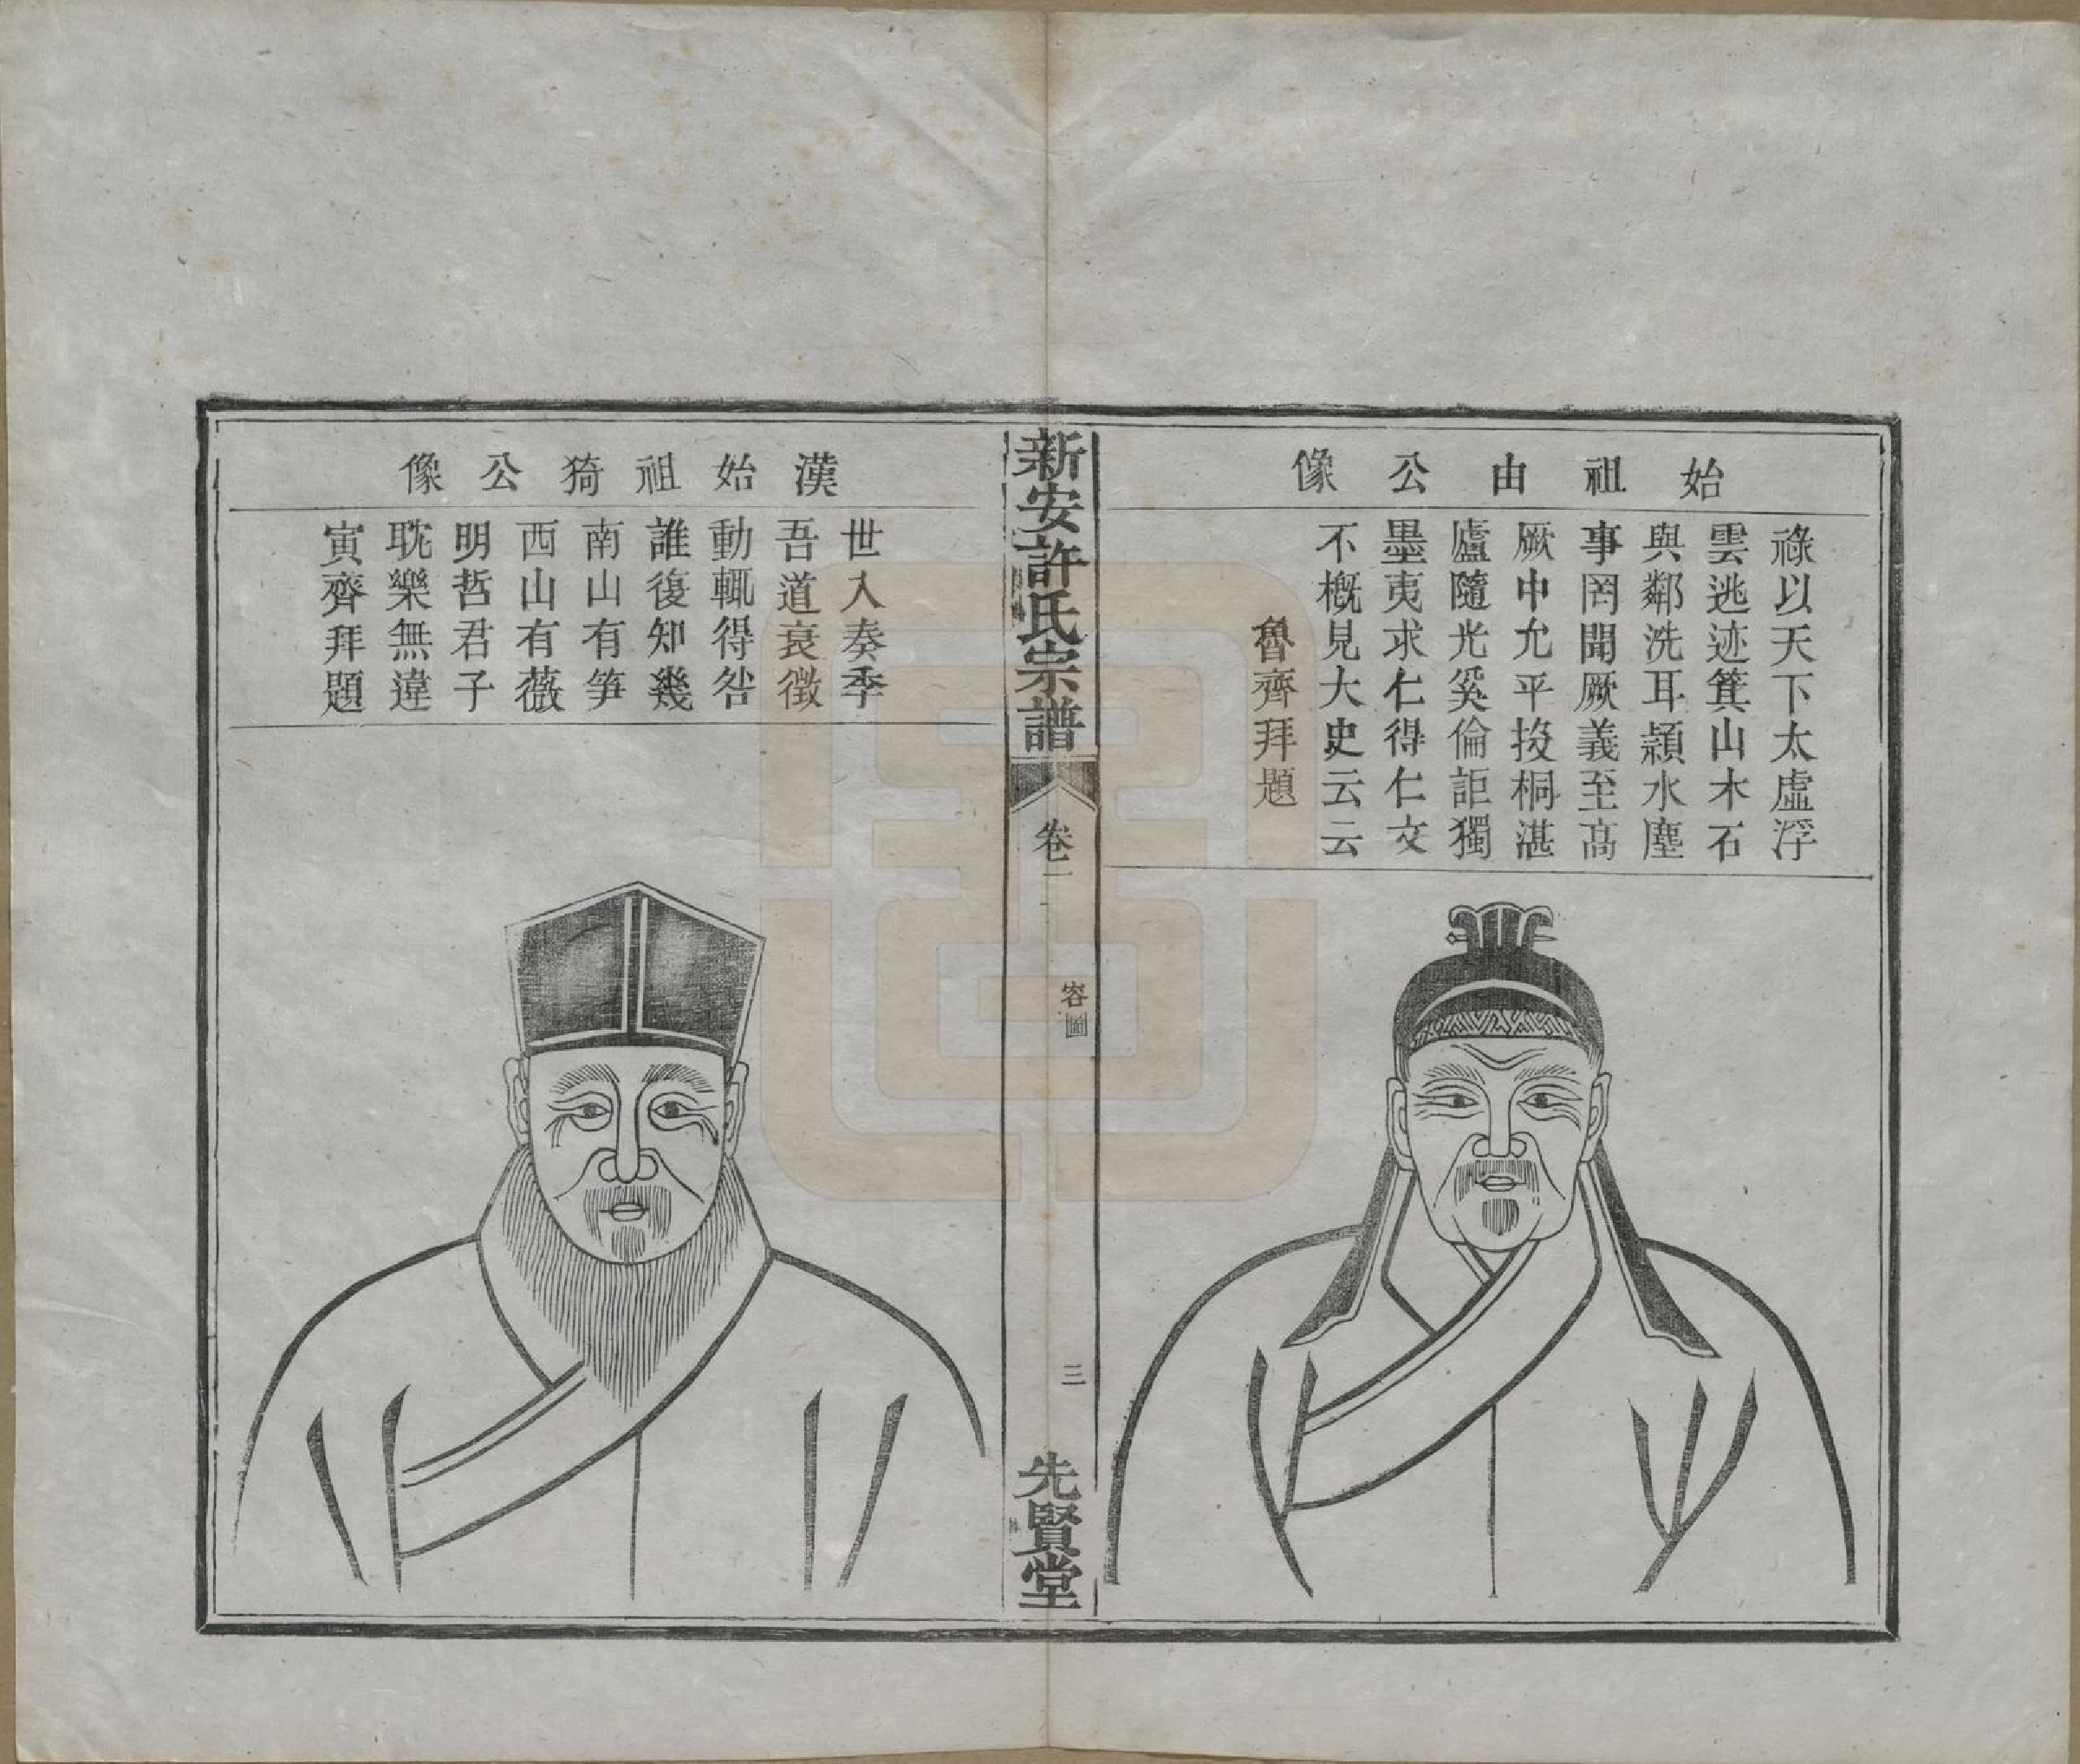 始祖由公像
祿以天下太虛浮
雲逃迹箕山木石
與鄰洗耳潁水塵
事罔聞厥義至高
厥中允平投桐湛
廬隨光奚倫詎獨
墨夷求仁得仁文
不概見大史云云
魯齊拜題
新安許氏宗譜
卷一
容圖
三
先賢堂
漢始祖猗公像
世入奏季
吾道衰徴
動輒得咎
誰復知幾
南山有笋
西山有薇
明哲君子
耽樂無違
寅齊拜題